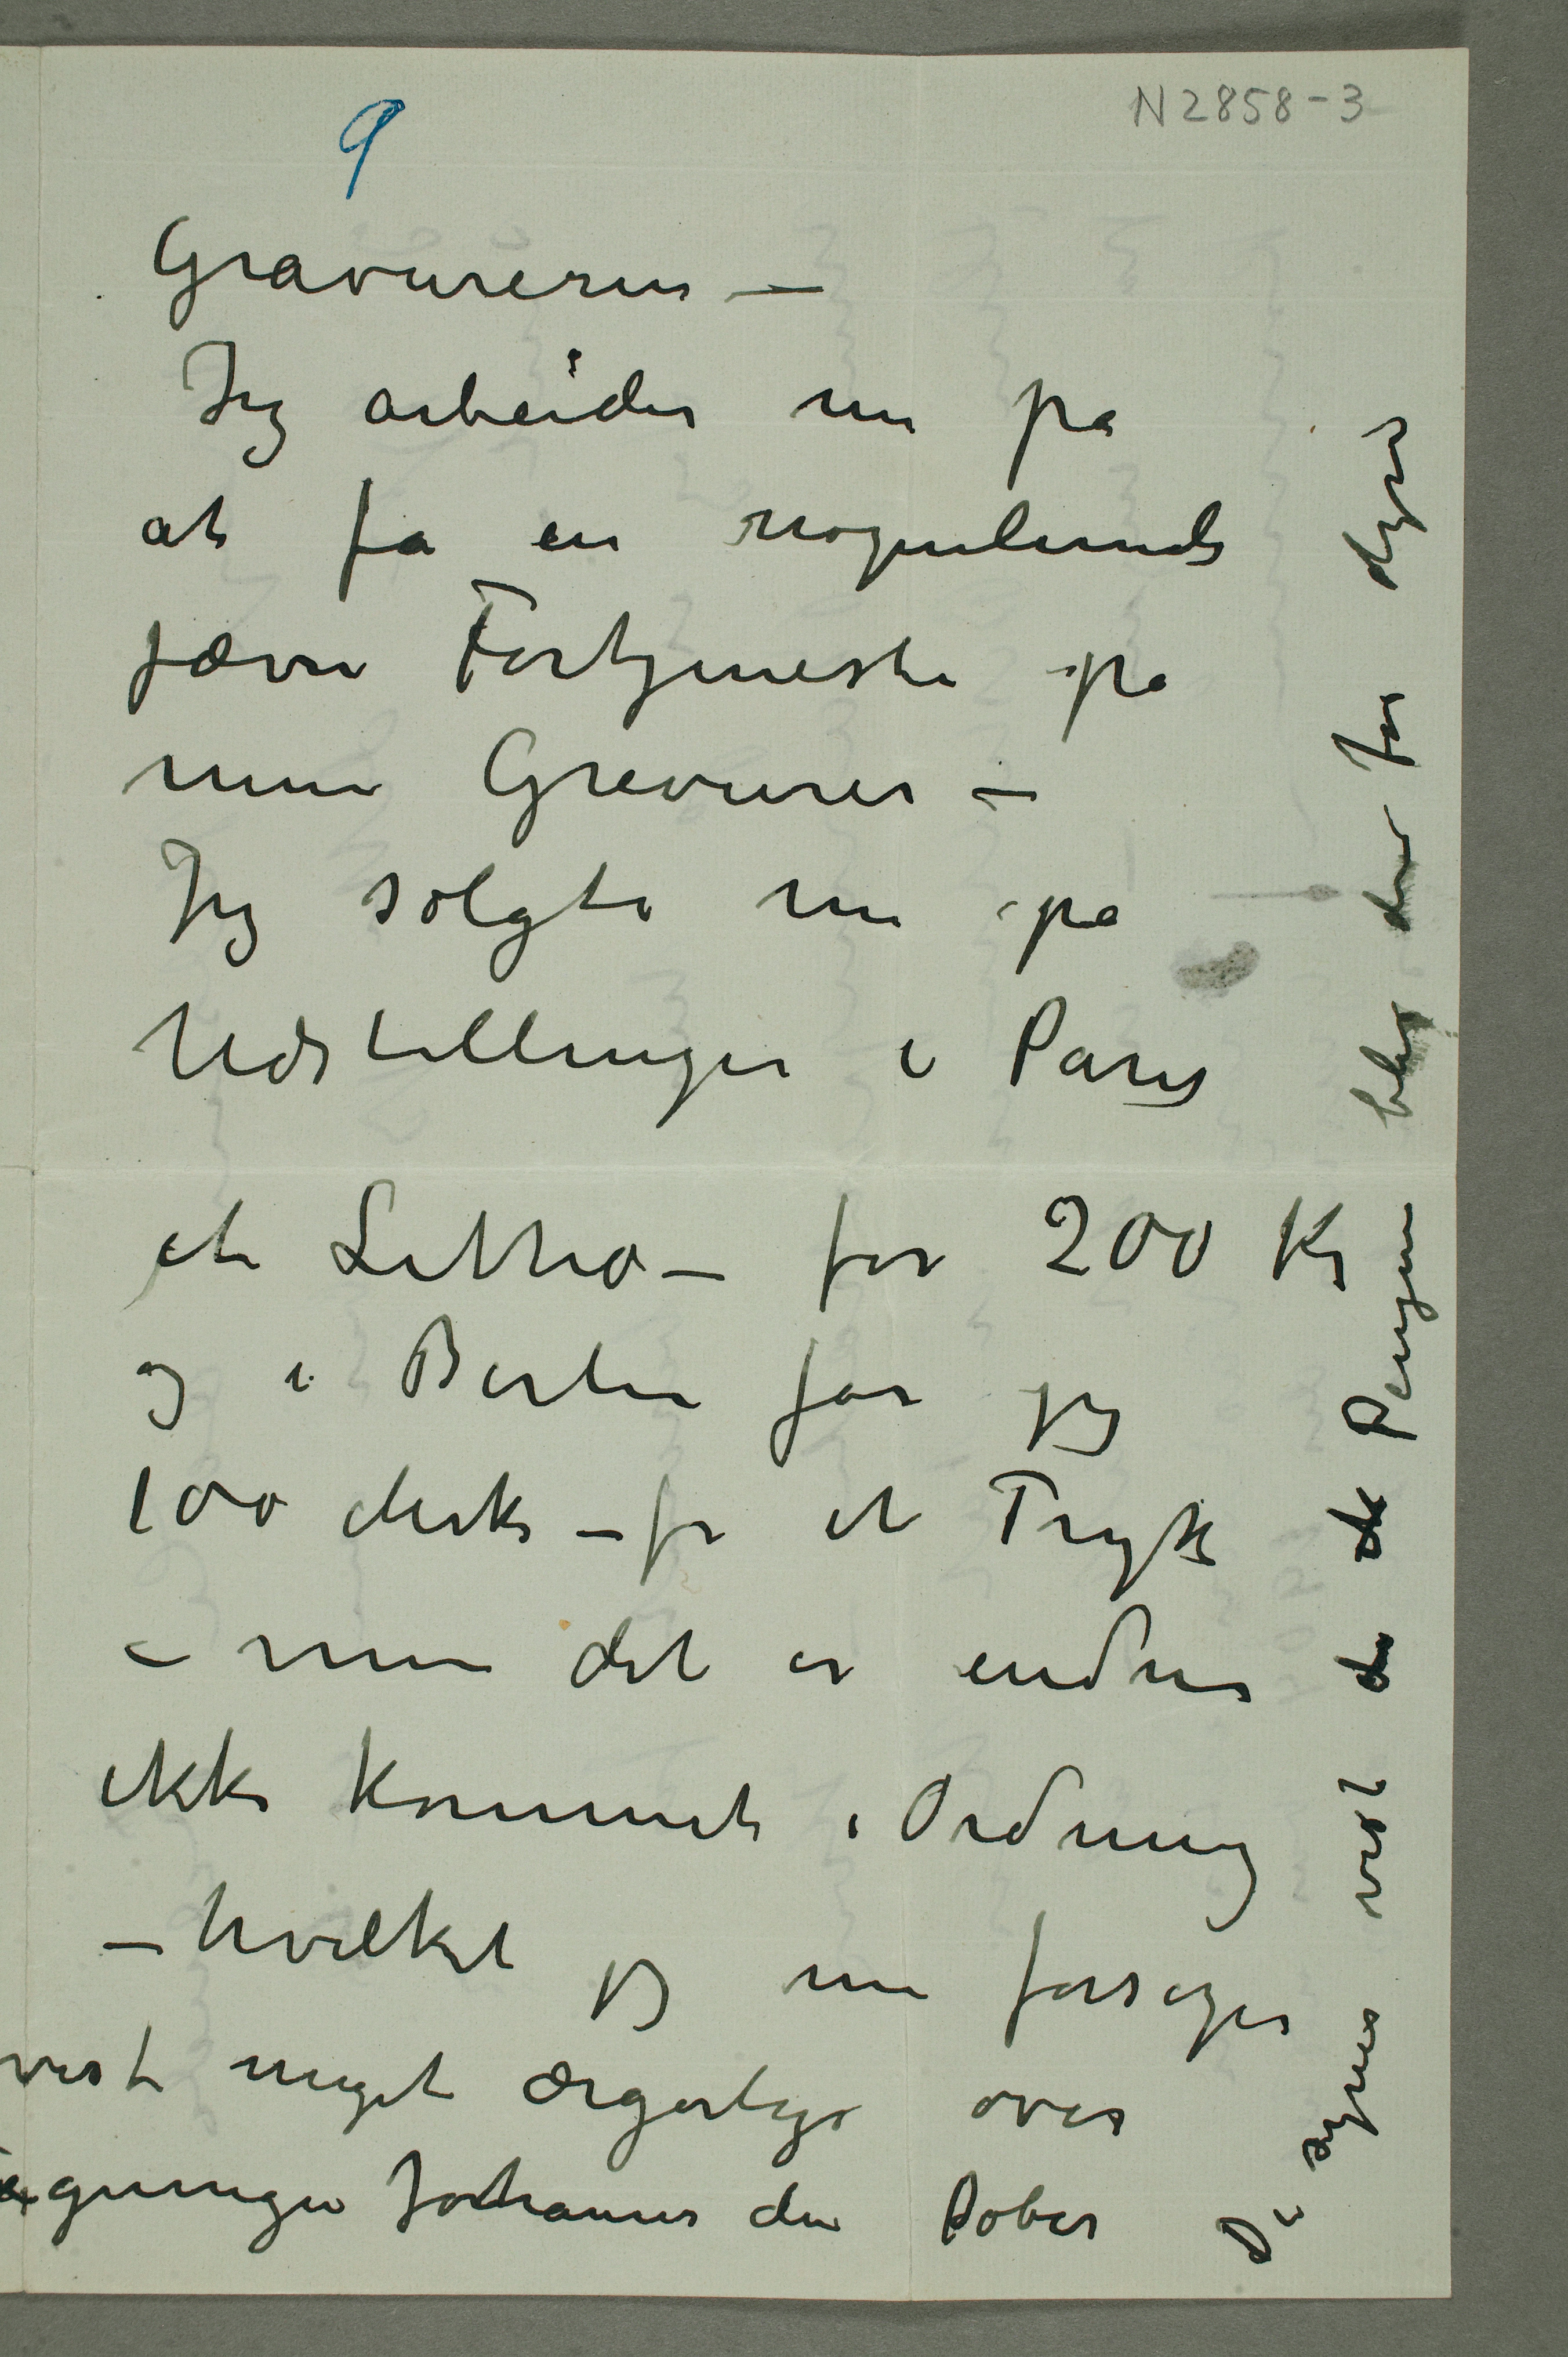 N 2858-3
9
Gravurerne –
Jeg arbeider nu på
at få en nogenlunde
jævn Fortjeneste på
mine Gravurer –
Jeg solgte nu på
Udstillingen i Paris
et Litho – for 200 Kr
og i Berlin får jeg
100 Mark – for et Tryk
– men det er endnu
ikke kommet i Ordning
– hvilket jeg nu forsøger
vist meget ærgerlige over
egningen Johannes den Døber
De synes vist de de Pengene
blev der for dyre